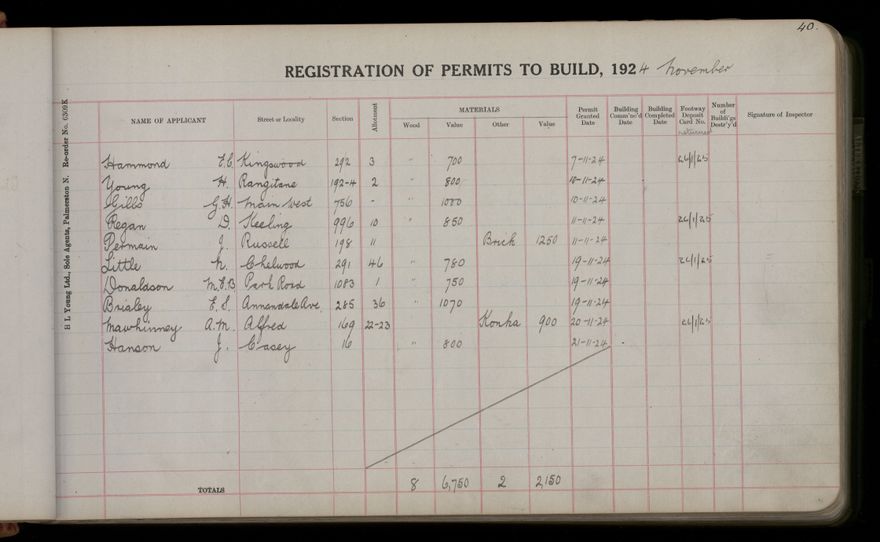 40.
REGISTRATION OF PERMITS TO BUILD, 1924 November
Re-order No. 6309K
H L Young Ltd., Sole Agents, Palmerston N.
NAME OF APPLICANT Street or Locality Section Allotment MATERIALS Wood Value Other Value Permit Granted Date Building Comm'nc'd Date Building Completed Date Footway Deposit Card No. returned Number of Buildi'gs Destr'y'd Signature of Inspector
Hammond E.C. Kingswood 292 3 " 700 7-11-24 26/1/25
Young H. Rangitane 192-4 2 " 800 10-11-24
Gibbs G.H. Main West 756 - " 1000 10-11-24
Regan D. Keeling 996 10 " 850 11-11-24 26/1/25
Permain J. Russell 198 11 Brick 1250 11-11-24
Little N. Chelwood 291 46 " 780 19-11-24 26/1/25
Donaldson M.E.B Park Road 1083 1 " 750 19-11-24
Brialey E.S. Annandale Ave. 285 36 " 1070 19-11-24
Mawhinney A.M. Alfred 169 22-23 Konka 900 20-11-24 26/1/25
Hanson J. Casey 16 " 800 21-11-24
TOTALS 8 6,750 2 2,150